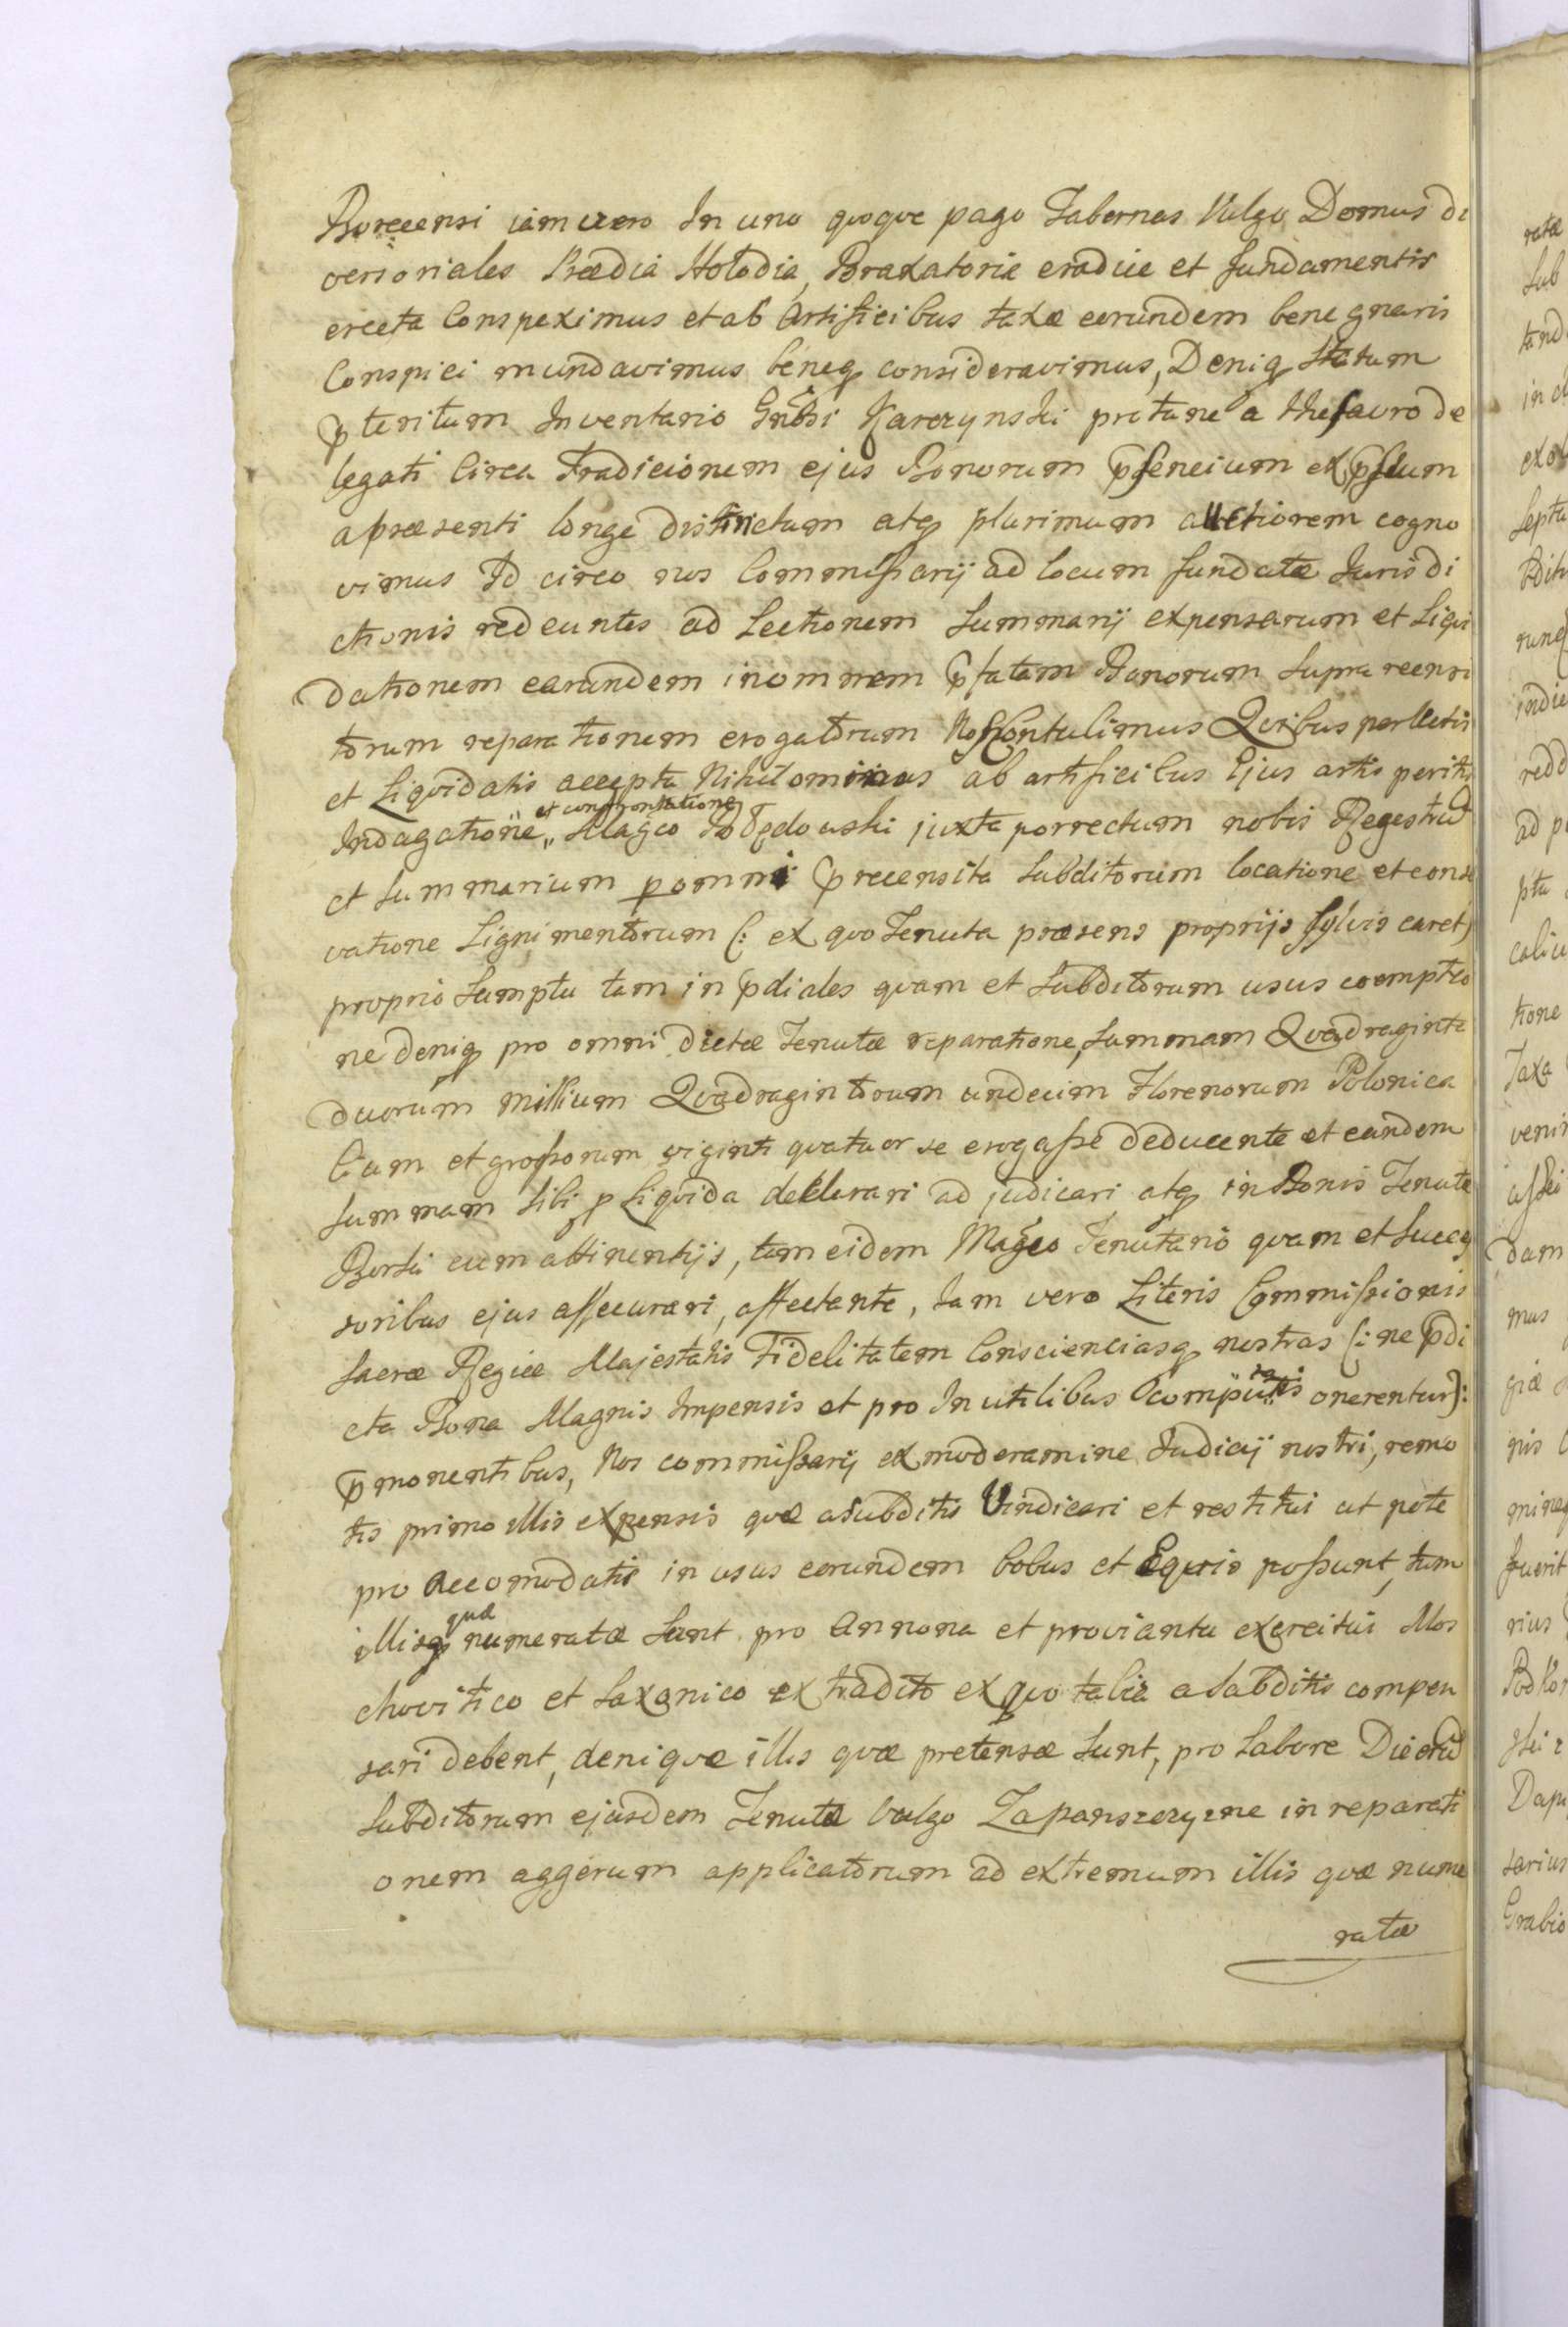 Borecensi iam vero In uno quoque pago Tabernas Vulgo Domus di
versoriales Prædia Hołodia, Braxatoria eradice et fundamentis
erecta Conspeximus et ab Artificibus taxæ eorundem bene gnaris
Conspici mundavimus beneq consideravimus, Deniq Statum
p̄teritum Inventario Karczynski pro tunc a thesauro de
legati Circa Tradicionem ejus Bonorum
apræsenti longe distinctum atq plurimum auctiorem cogno
vimus Id circo nos Commissarij ad locum fundatæ Jurisdi
ctionis redeuntes ad Lectionem Summarij expensarum et Liqui
dationem earundem inomnem p̄fatam Bonorum Supra recensi
torum reparationem erogatorum Nos Contulimus Quibus perlectis
et Liqvidatis accepta Nihilominus ab artificibus Ejus artis peritis
Indagatione et comprontatione Magco juxta porrectum nobis Regestrū
et Summarium p omni p̄recensita Subditorum locatione et conse
vatione Lignimentorum (: ex quo Tenuta præsens proprijs Sylvis caret)
proprio Sumptu tam in p̄diales quam et Subditorum usus coemptio
ne deniq pro omni dictæ Tenutæ reparatione, Summam Quadraginta
duorum millium Quadragintorum undecim Florenorum Polonica
liam et grossorum viginti quatuor se erogasse deducente et eandem
Summam sibi p Liqvida declarari ad judicari atq in Bonis Tenutæ
cum attinentijs, tam eidem Magco Tenutario quam et Succes
soribus ejus assecurari, affectante, Jam vero Literis Commissionis
Sacræ Regiæ Majestatis Fidelitatem Conscienciasq nostras (: ne p̄di
cta Bona Magnis Impensis et pro Inutilibus onerentur):
p̄monentibus, Nos commissarij ex moderamine Judicij nostri, remo
tis primo illis expensis quæ asubditis Vindicari et restitui ut pote
pro Accomodatis in usus eorundem bobus et Equis possunt, tum
illisq quæ numeratæ Sunt pro Annona et provianta exercitui Mos
chovitico et Saxonico extradito ex quo talia a Subditis compen
sari debent, denique illis quæ pretensæ Sunt, pro Labore Dierū
Subditorum ejusdem Tenutæ Vulgo Zapanszczyzne in reparati
onem aggerum applicatorum ad extremum illis quæ nume
ratæ